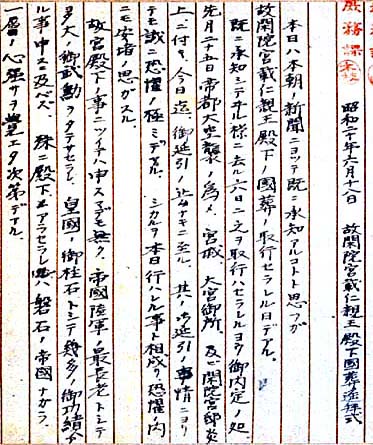 庶務課
昭和二十年六月十八日　故閑院宮載仁親王殿下國葬遥拝式
本日ハ本朝ノ新聞ニヨッテ既ニ承知アルコトト思フガ
故閑院宮載仁親王殿下ノ國葬ノ取行セラレル日デアル。
既ニ承知シテヰル様ニ去ル六日ニ之ヲ取行ハセラレルヨウ御内定ノ処
先月二十五日帝都大空襲ノ為メ、宮城、大宮御所、及ビ閑院宮邸炎
上ニ付キ、今日迄御延引ノ止ムナキニ至ル、其ノ御延引ノ事情ニヨリ
テモ誠ニ恐懼ノ極ミデアル。シカシ本日行ハレル事ト相成リ恐懼内
ニモ安堵ノ思ガスル。
故宮殿下ノ事ニツイテハ申スマデモ無ク、帝國陸軍ノ最長老トシテ
多大ノ御武勳ヲタテサセラレ、皇國ノ御柱石トシテ幾多ノ御功績ア
ル事申スニ及バズ、殊ニ殿下ノアラセラレ ハ磐石ノ帝國ナガラ、
一層ノ心強サヲ覺エタ次第デアル。